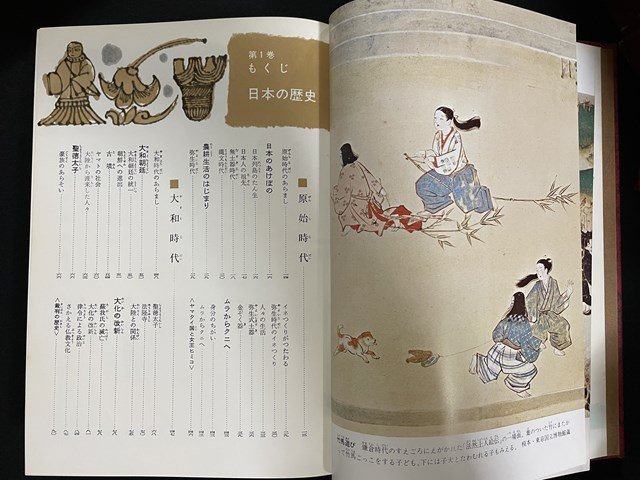 第1巻
もくじ
日本の歴史
原始時代
原始時代のあらまし
日本のあけぼの
日本列島のたん生
日本人の祖先
無土器時代
縄文時代
農耕生活のはじまり
弥生時代
イネつくりがつたわる
弥生時代のイネつくり
人々の生活
弥生式土器
金ぞく器
ムラからクニへ
身分のちがい
ムラからクニへ
〈ヤマタイ国と女王ヒミコ〉
大和時代
大和時代のあらまし
大和朝廷
大和朝廷の統一
朝鮮への進出
古墳
ヤマトの社会
大陸から渡来した人々
聖徳太子
豪族のあらそい
聖徳太子
法隆寺
大陸との関係
大化の改新
蘇我氏の滅亡
大化の改新
律令による政治
さかえる仏教文化
竹馬遊び 鎌倉時代のすえごろにえがかれた「
の一場面。葉のついた竹にまたが
って竹馬ごっこをする子ども。下には子犬とたわむれる子もみえる。模本・東京国立博物館蔵